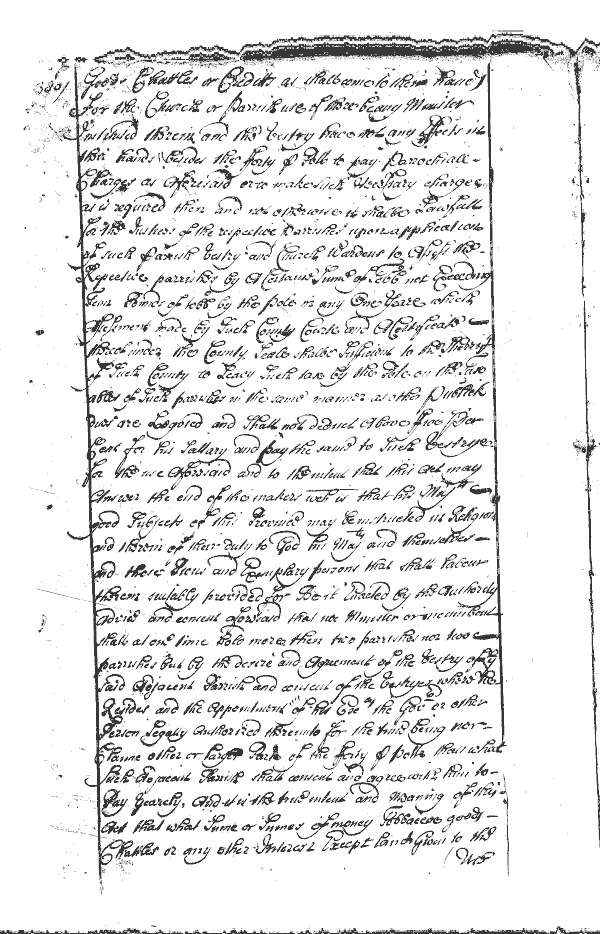 Goods Chattles or Creditts as shall come to their hands
For the Church or Parrish use if there being Minister
Instituted therein and the Vestry have not any Effects in
their hands besides the forty P Poll to pay Parrochiall
Charges as Aforesaid or to make such Necessary charges
as is required then and not otherwise it shalbe Lawfull
for the Justices of the respective Parrishes upon application
of such Parrish Vestry and Church Wardens to Assess the
Respective parrishes by A Certaine Sume of Tobb not Exceeding
Tenn Pounds of tobb by the Pole in any One Yeare which
Assessment made by such County Court and A Certificate
thereof under the County Seale shalbe Sufficient to the Sherriff
of such County to Leavy such tax by the Pole on the Tax
ables of such parrishes in the same manner as other Publick
dues are Leavyed and shall not deduct Above five Per
Cent for his Sallary and pay the same to such Vestryes
for the use Aforesaid and to the intent that this Act may
Answer the end of the makers wch is that his Majtys
good Subjects of this Province may be instructed in Religion
and therein of their duty to God his Majty and themselves
and those Pious and Exemplary persons that shall labour
therein suitably provided for Be it Enacted by the Authority
advice and consent aforesaid that no Minister or incumbent
shall at one time hold more then two parrishes nor two
parrishes but by the desire and Agreement of the Vestry of the
said Adjacent Parrish and consent of the Vestryes where he
Resides and the Appointment of his Exncy the Govr or other
Person Legally Authorized thereunto for the time being nor
Claime other or larger Parte of the forty P Polle than what
such Adjacent Parish shall consent and agree with him to
Pay Yearely, And it is the true intent and Meaning of this
Act that what Sume or Sumes of money Tobbaccoe goods
Chattles or any other Interest Except land Given to the
Use